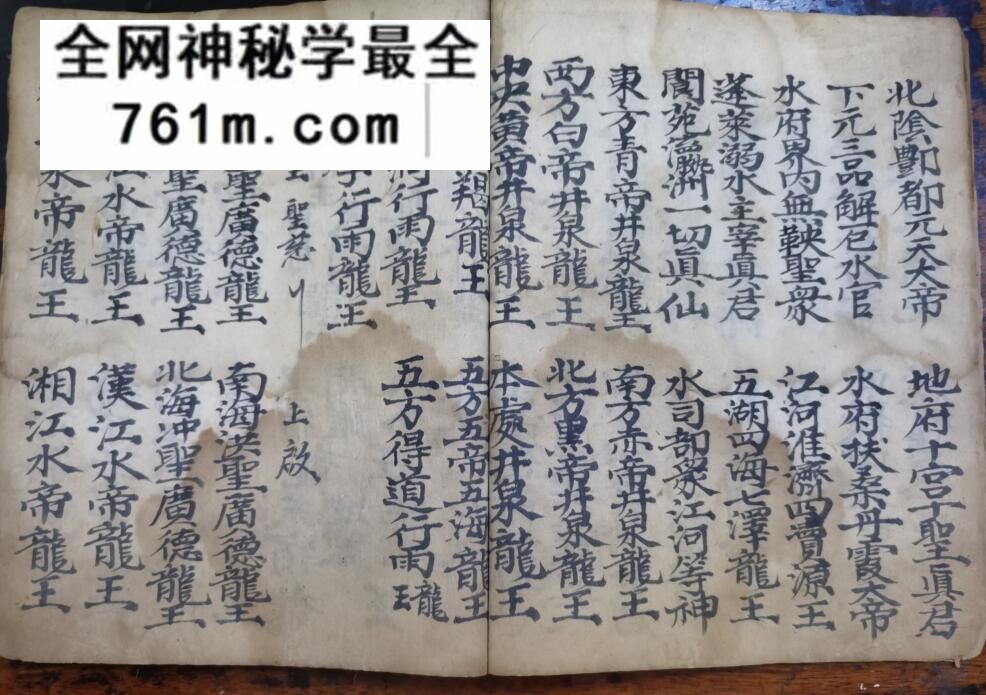 全网神秘学最全
761m.com
北陰酆都元天大帝
地府十宮十聖眞君
下元三品解厄水官
水府扶桑丹霞大帝
水府界內無鞅聖衆
江河淮濟四瀆源王
蓬萊溺水主宰眞君
五湖四海七澤龍王
閬苑瀛洲一切眞仙
水司部衆江河等神
東方青帝井泉龍王
南方赤帝井泉龍王
西方白帝井泉龍王
北方黑帝井泉龍王
中央黄帝井泉龍王
本處井泉龍王
龍王
五方五帝五海龍王
行雨龍王
五方得道行雨龍王
行雨龍王
聖慈
上啟
聖廣德龍王
南海洪聖廣德龍王
聖廣德龍王
北海冲聖廣德龍王
江水帝龍王
漢江水帝龍王
水帝龍王
湘江水帝龍王